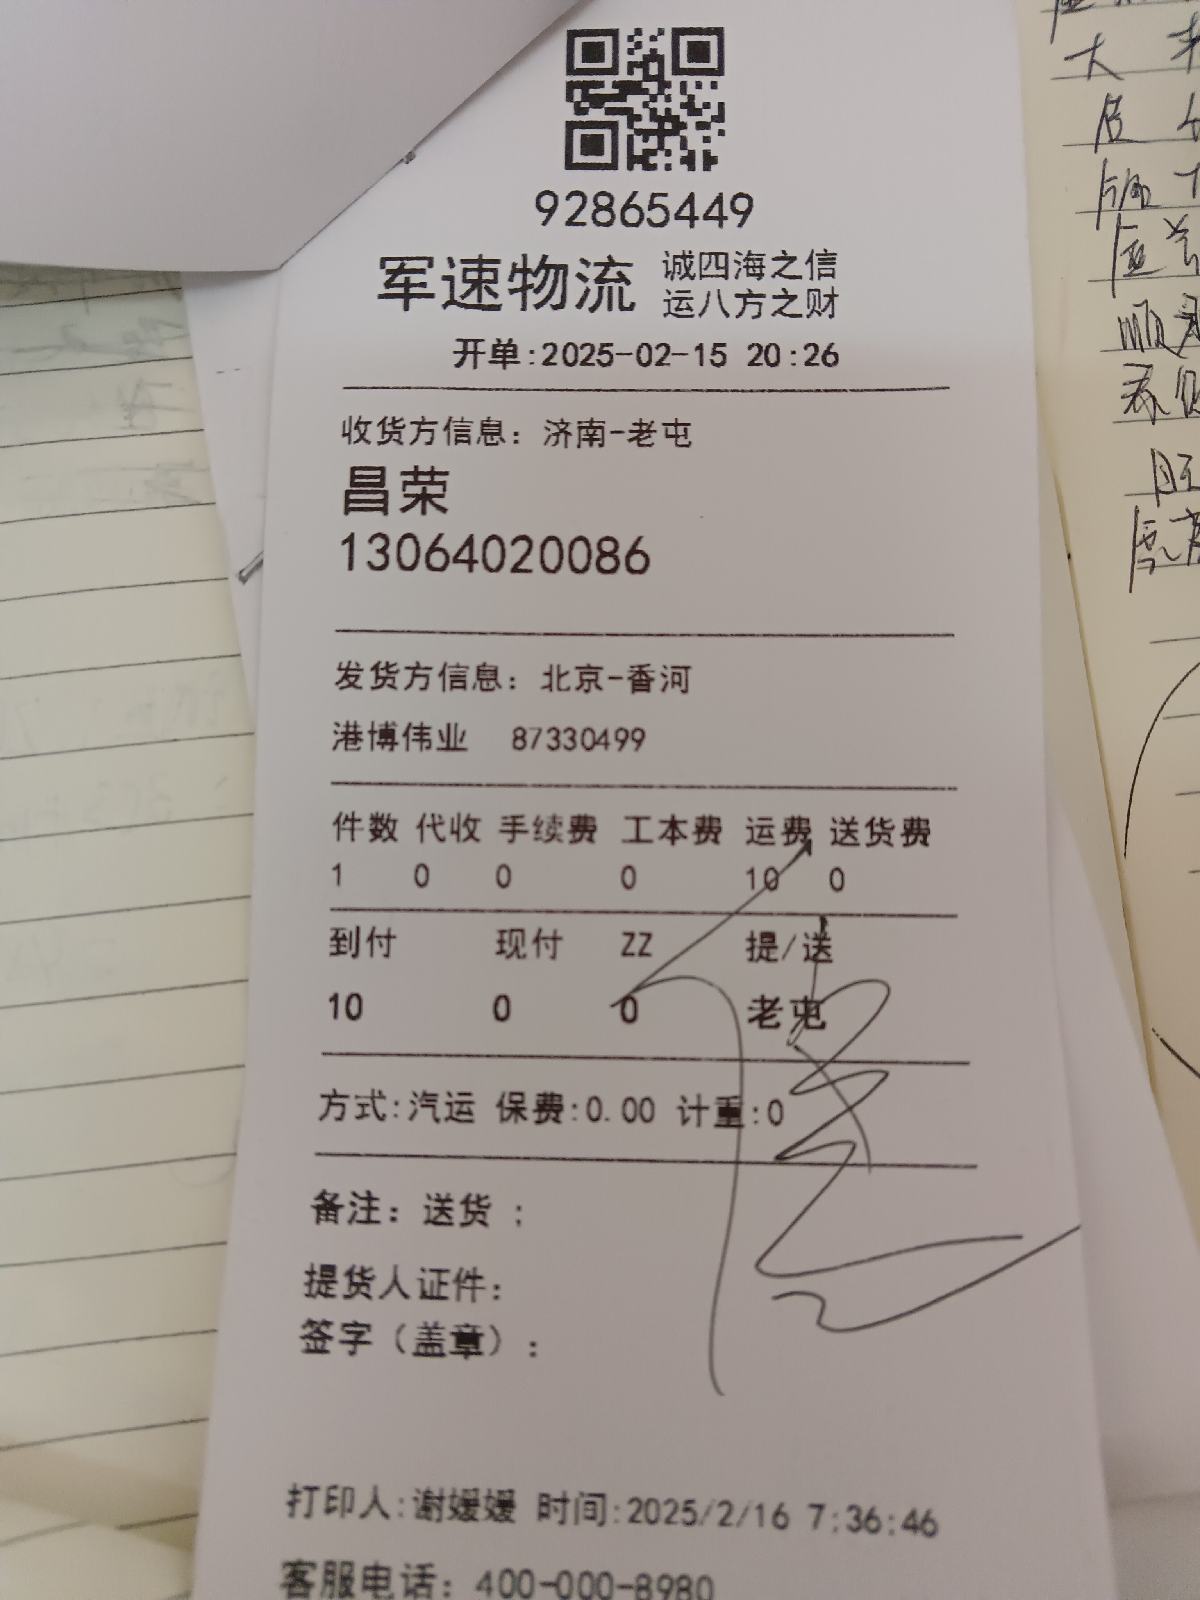 92865449
军速物流 诚四海之信
运八方之财
开单:2025-02-15 20:26
收货方信息: 济南-老屯
昌荣
13064020086
发货方信息: 北京-香河
港博伟业 87330499
件数 代收 手续费 工本费 运费 送货费
1 0 0 0 10 0
到付 现付 ZZ 提/送
10 0 0 老屯
方式:汽运 保费:0.00 计重:0
备注: 送货 ;
提货人证件:
签字(盖章):
打印人:谢媛媛 时间:2025/2/16 7:36:46
客服电话: 400-000-8980